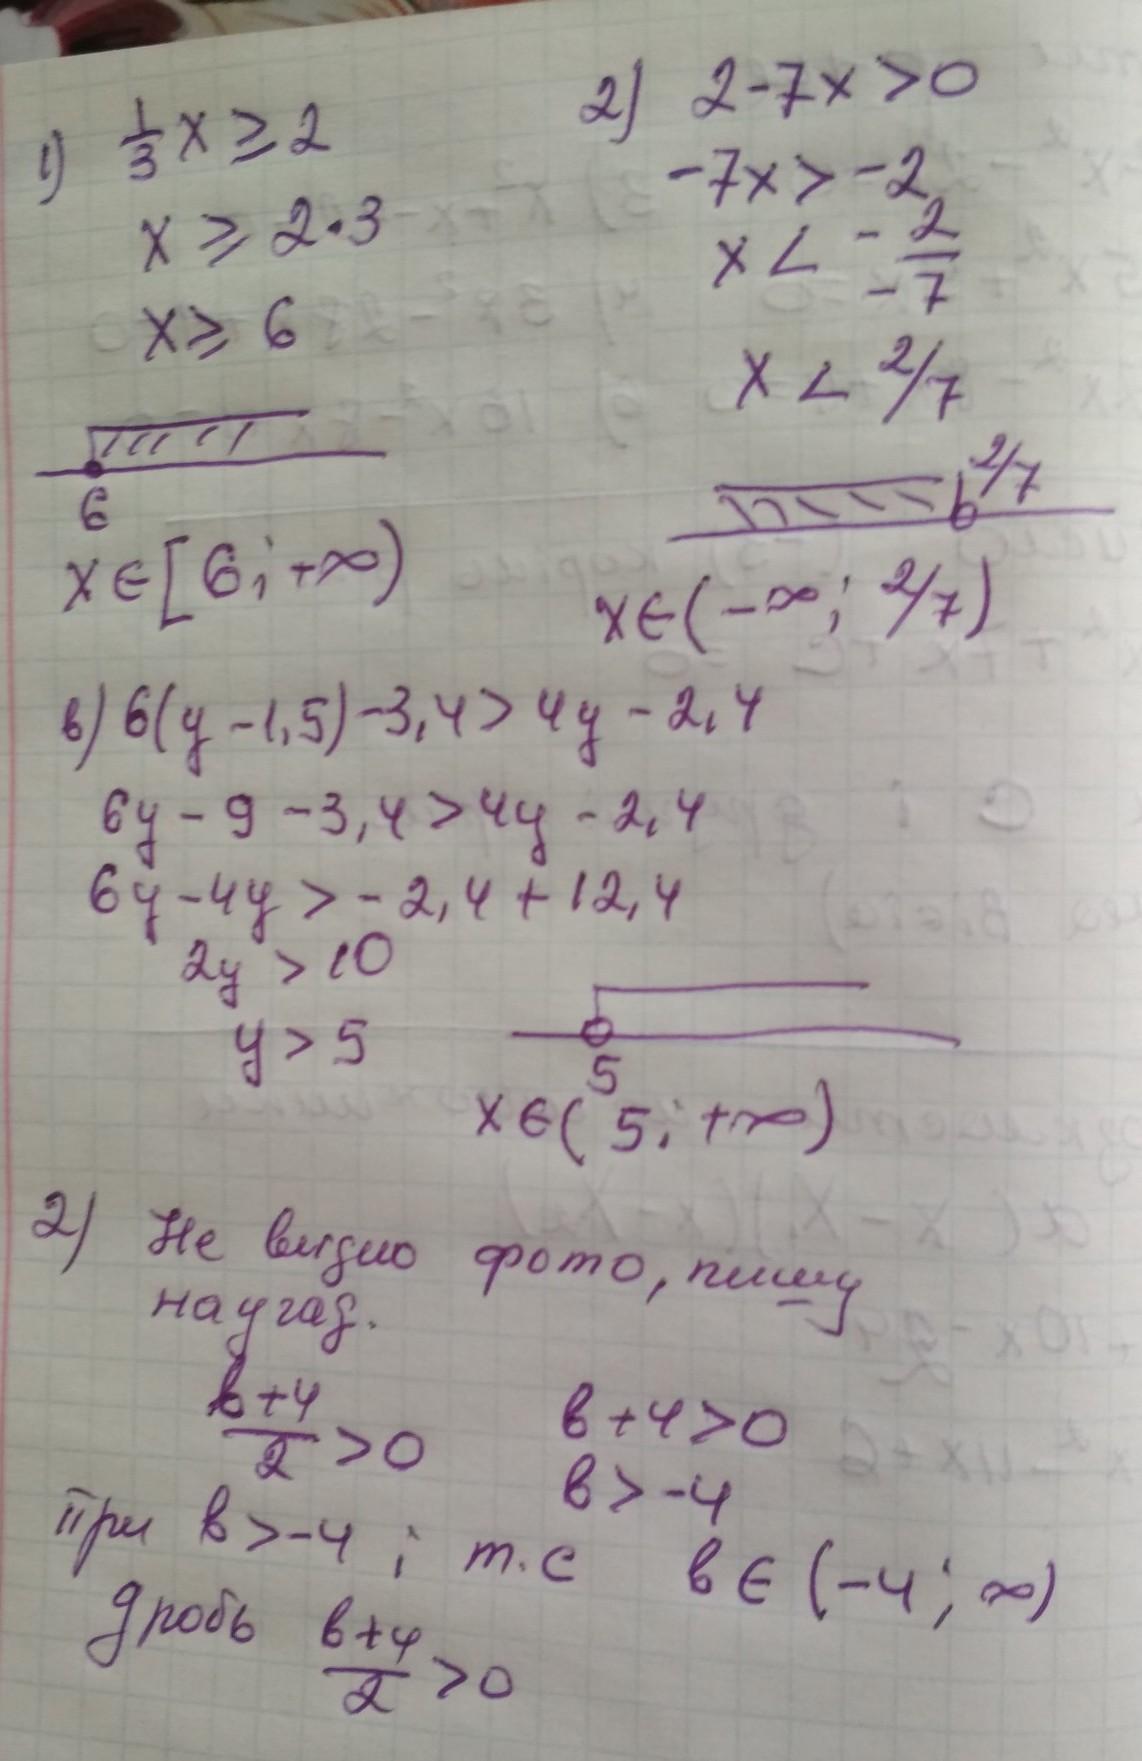 1) 1/3 x ≥ 2
x ≥ 2·3
x ≥ 6
6
x∈[6; +∞)
2) 2-7x>0
-7x>-2
x < -2/-7
x < 2/7
2/7
x∈(-∞; 2/7)
в) 6(y-1,5)-3,4>4y-2,4
6y-9-3,4>4y-2,4
6y-4y>-2,4+12,4
2y>10
y>5
5
x∈(5; +∞)
2) Не видно фото, пишу
наугад.
в+4/2 >0
в+4>0
в>-4
При в>-4; т.е в∈(-4; ∞)
дробь в+4/2 >0